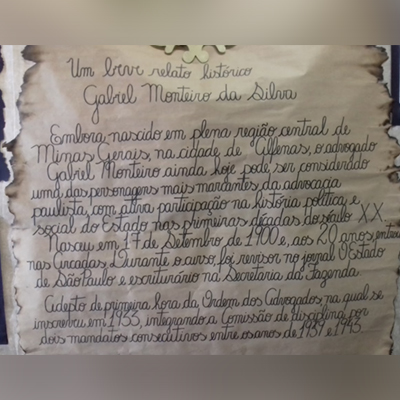 Um breve relato histórico
Gabriel Monteiro da Silva
Embora nascido em plena região central de
Minas Gerais, na cidade de Alfenas, o advogado
Gabriel Monteiro ainda hoje pode ser considerado
uma das personagens mais marcantes da advocacia
paulista, com ativa participação na história política e
social do Estado nas primeiras décadas do século XX...
Nasceu em 17 de Setembro de 1900 e, aos 20 anos, entrou
nas Arcadas. Durante o curso, foi revisor no jornal O Estado
de São Paulo e escriturário na Secretaria da Fazenda.
Adepto de primeira hora da Ordem dos Advogados, na qual se
inscreveu em 1933, integrando a Comissão de disciplina por
dois mandatos consecutivos entre os anos de 1939 e 1943.